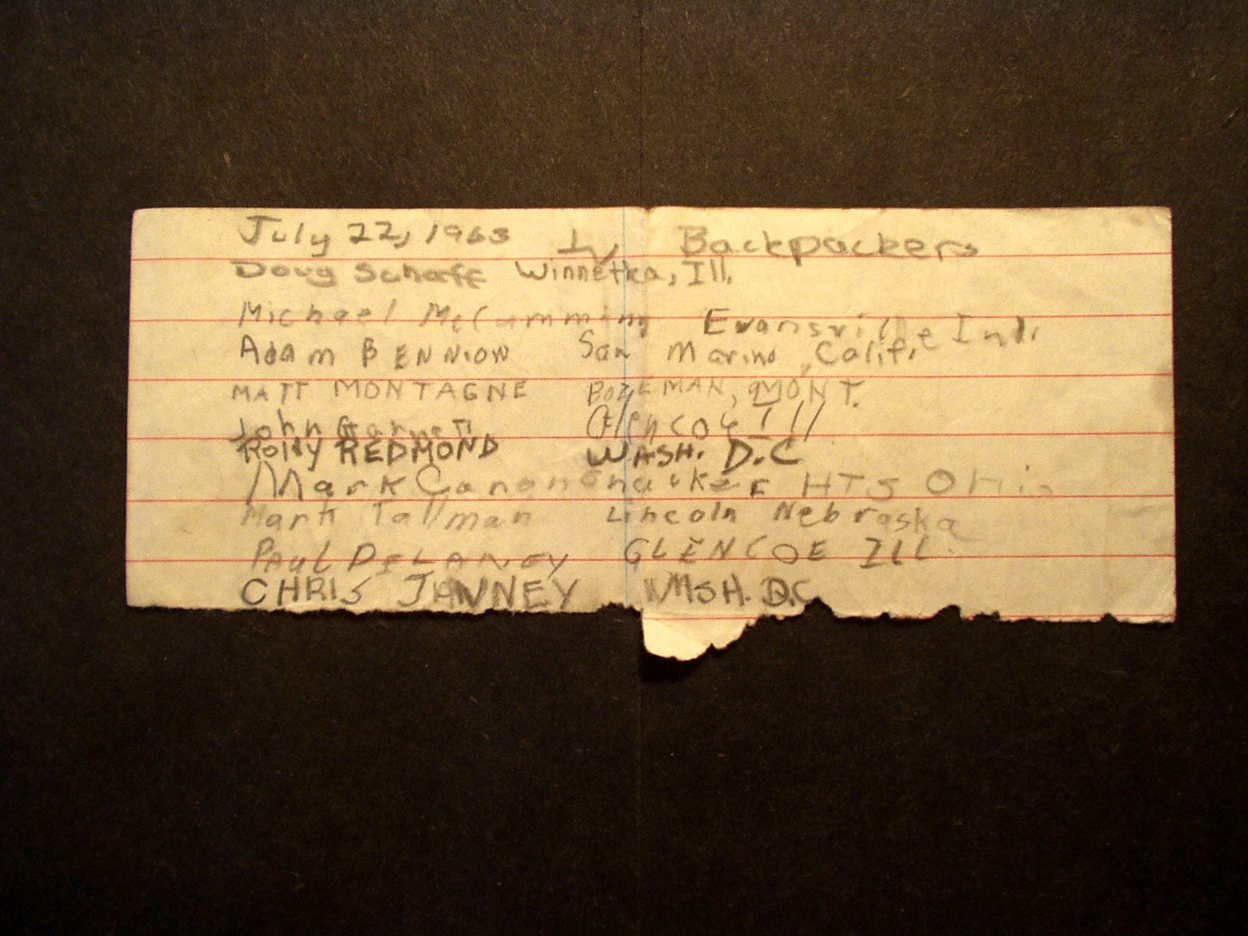 July 22, 1963 Backpackers
Doug Schaff Winnetka, Ill.
Michael McCammon Evansville Ind.
Adam BENNION San Marino, Calif.
MATT MONTAGNE BOZEMAN, MONT.
John Garnett Glencoe Ill
REDMOND WASH. D.C
Mark Canon HTS Ohio
Mark Tallman Lincoln Nebraska
PAUL DELANEY GLENCOE ILL.
CHRIS JANNEY WASH. D.C.